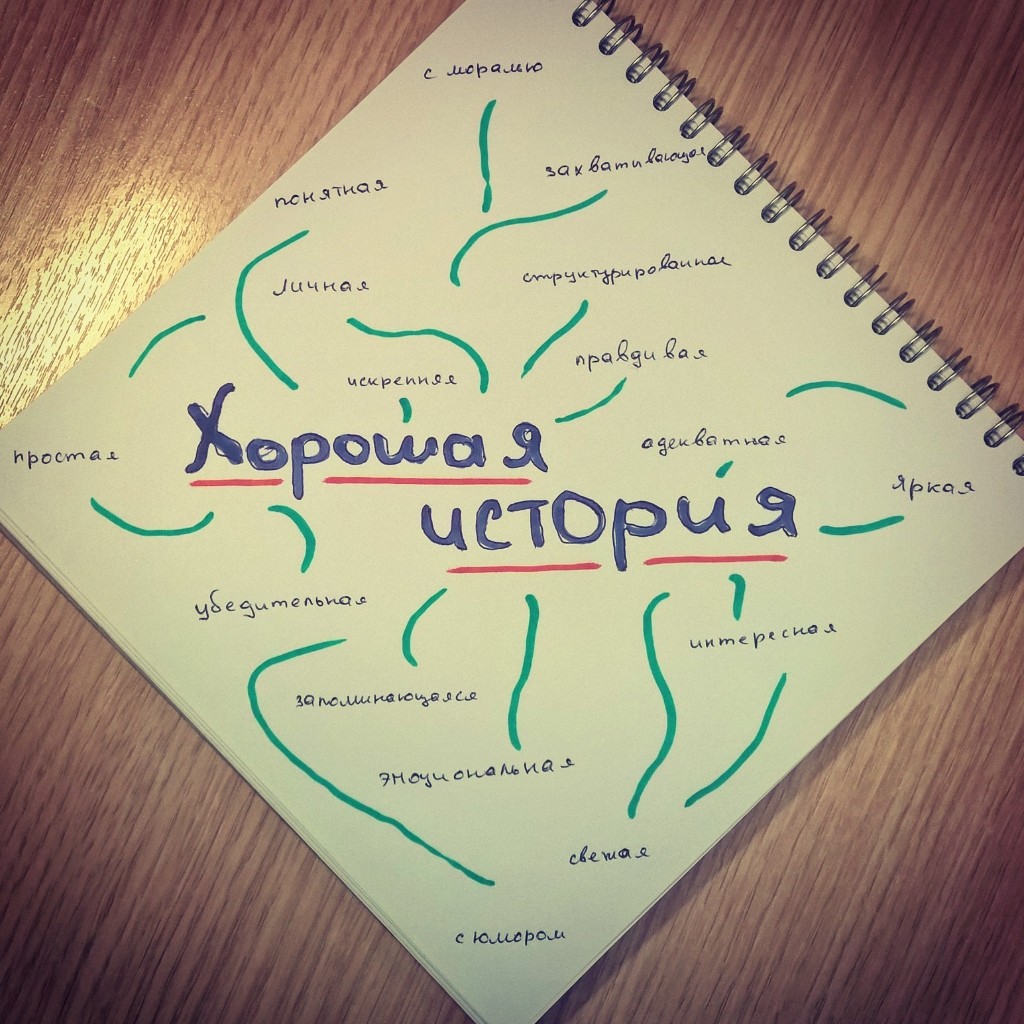 с моралью
захватывающая
понятная
личная
структурированная
правдивая
искренняя
Хорошая
адекватная
простая
яркая
история
убедительная
интересная
запоминающаяся
эмоциональная
свежая
с юмором